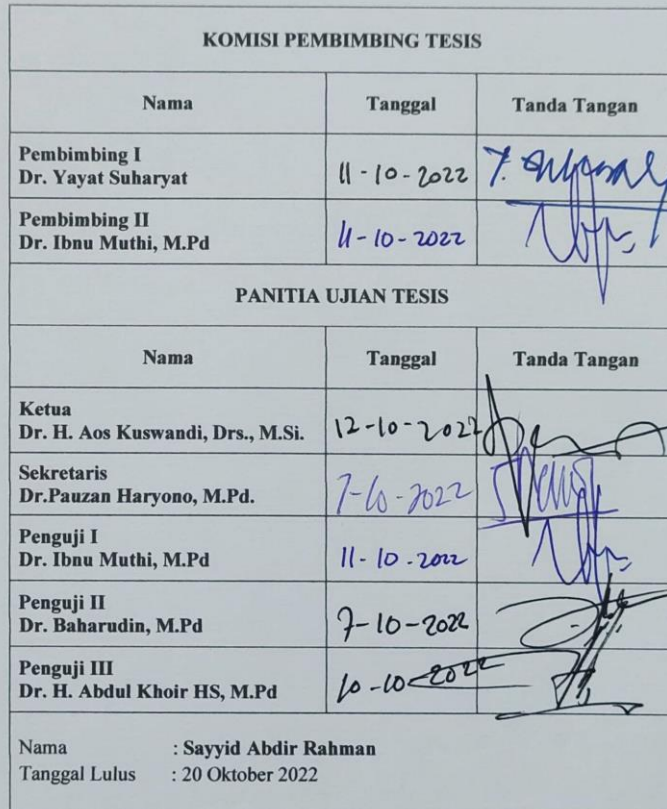 KOMISI PEMBIMBING TESIS
Nama Tanggal Tanda Tangan
Pembimbing I
Dr. Yayat Suharyat 11-10-2022
Pembimbing II
Dr. Ibnu Muthi, M.Pd 11-10-2022
PANITIA UJIAN TESIS
Nama Tanggal Tanda Tangan
Ketua
Dr. H. Aos Kuswandi, Drs., M.Si. 12-10-2022
Sekretaris
Dr.Pauzan Haryono, M.Pd. 7-10-2022
Penguji I
Dr. Ibnu Muthi, M.Pd 11-10-2022
Penguji II
Dr. Baharudin, M.Pd 7-10-2022
Penguji III
Dr. H. Abdul Khoir HS, M.Pd 10-10-2022
Nama : Sayyid Abdir Rahman
Tanggal Lulus : 20 Oktober 2022